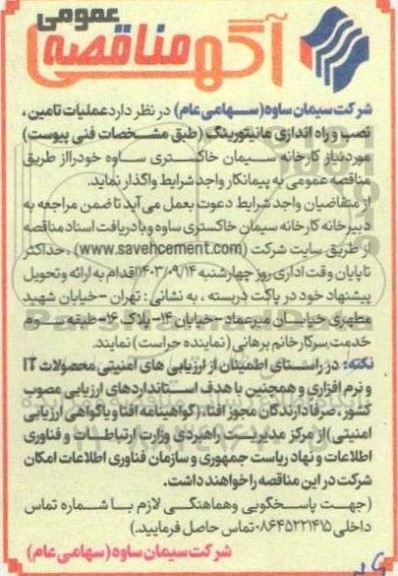 آگهی مناقصه عمومی
شرکت سیمان ساوه (سهامی عام) در نظر دارد عملیات تامین،
نصب و راه اندازی مانیتورینگ (طبق مشخصات فنی پیوست)
مورد نیاز کارخانه سیمان خاکستری ساوه خود را از طریق
مناقصه عمومی به پیمانکار واجد شرایط واگذار نماید.
از متقاضیان واجد شرایط دعوت بعمل می آید تا ضمن مراجعه به
دبیرخانه کارخانه سیمان خاکستری ساوه و یا دریافت اسناد مناقصه
از طریق سایت شرکت (www.savehcement.com)، حداکثر
تا پایان وقت اداری روز چهارشنبه ۱۴۰۳/۰۹/۱۴ اقدام به ارائه و تحویل
پیشنهاد خود در پاکت دربسته، به نشانی: تهران - خیابان شهید
مطهری خیابان میرعماد - خیابان ۱۴ - پلاک ۱۶ - طبقه سوم
خدمت سرکار خانم برهانی (نماینده حراست) نمایند.
نکته: در راستای اطمینان از ارزیابی های امنیتی محصولات IT
و نرم افزاری و همچنین با هدف استانداردهای ارزیابی مصوب
کشور، صرفا دارندگان مجوز افتا، (گواهینامه افتا و یا گواهی ارزیابی
امنیتی) از مرکز مدیریت راهبردی وزارت ارتباطات و فناوری
اطلاعات و نهاد ریاست جمهوری و سازمان فناوری اطلاعات امکان
شرکت در این مناقصه را خواهند داشت.
(جهت پاسخگویی و هماهنگی لازم با شماره تماس
داخلی ۰۸۶۴۵۲۲۱۴۱۵ تماس حاصل فرمایید.)
شرکت سیمان ساوه (سهامی عام)